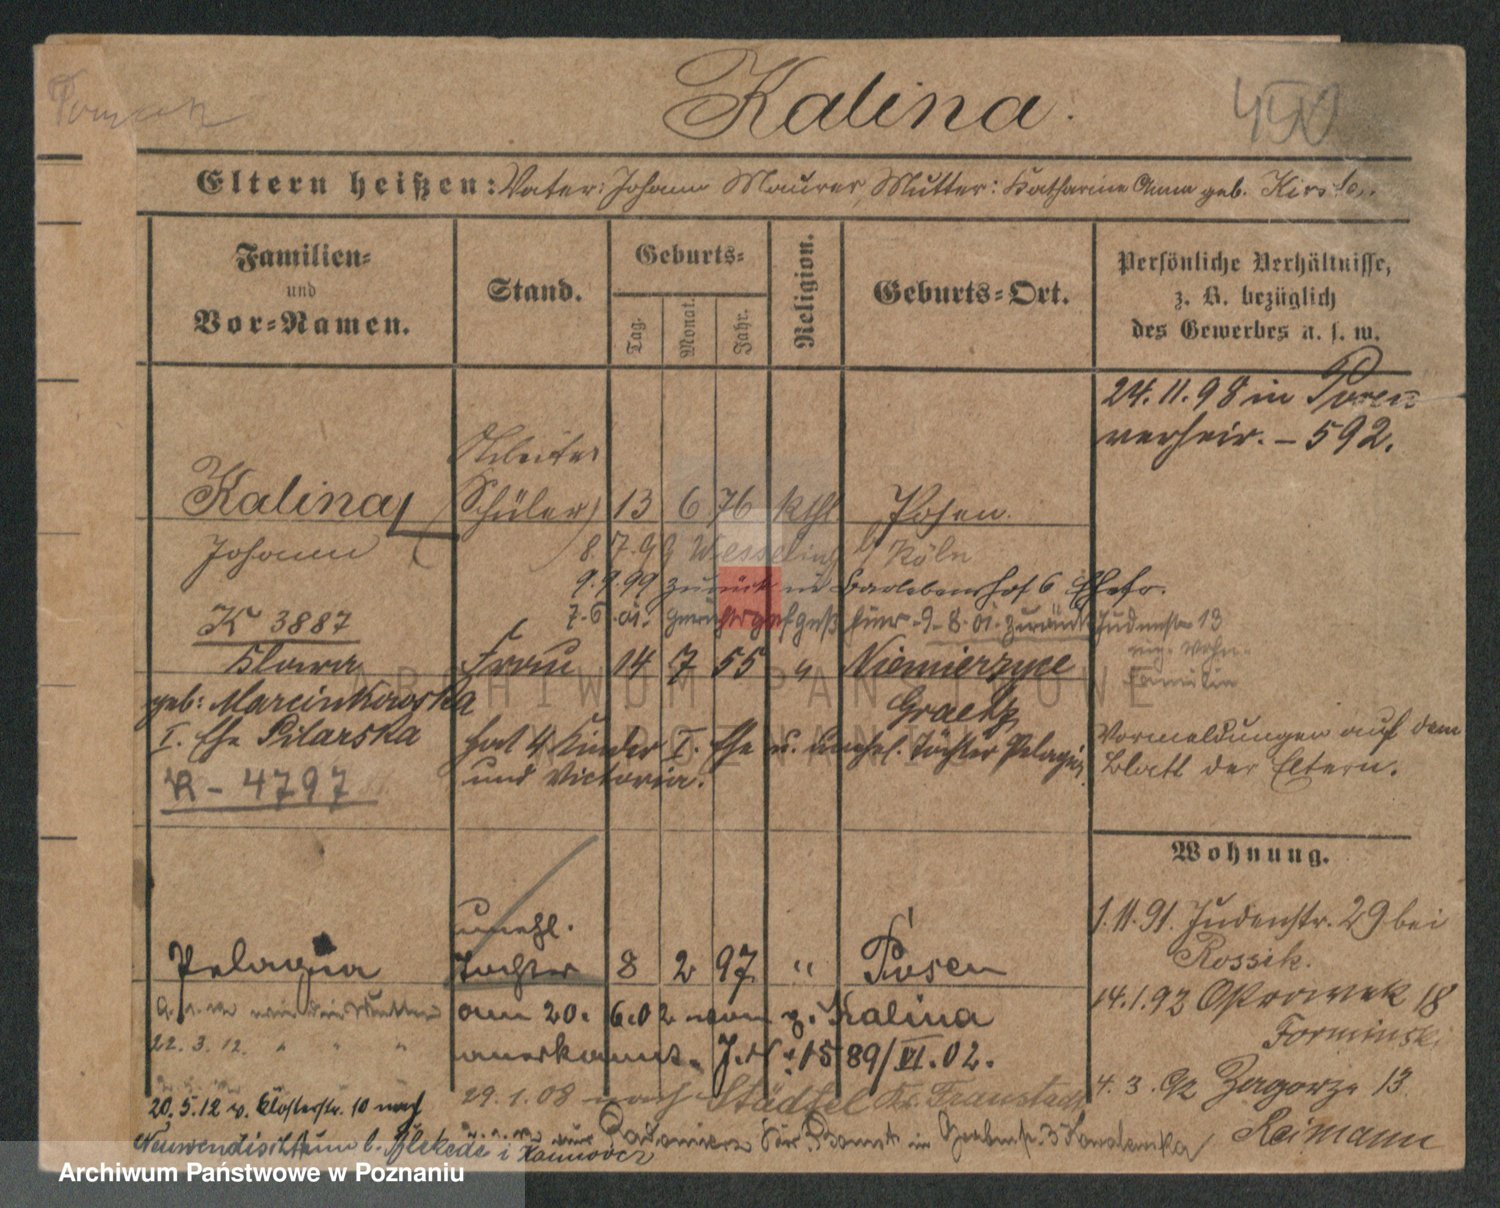 Kalina.
Eltern heißen: Vater: Johann Maurer, Mutter: Katharine Anna geb. Kirste.
Familien-
und
Vor-Namen.
Stand.
Geburts-
Tag.
Monat.
Jahr.
Religion.
Geburts-Ort.
Persönliche Verhältnisse,
z. B. bezüglich
des Gewerbes u. s. w.
24.11.98 in Posen
verheir. - 592.
Arbeiter
Kalina, (Schüler) 13 6 76 kthl Posen.
Johann
8.7.99 Wesseling b/ Köln
9.9.99 zurück in 6 Ehefr.
7.6.01. 9.8.01. zurück Judenstr 13
K 3887
Frau 14 7 55 " Niemierzyce
Graetz
geb: Marcinkowska
I. Ehe Pilarska hat 4 Kinder I. Ehe u. unehel. Töchter Pelagia
und Victoria.
Vormeldungen auf dem
Blatt der Eltern.
R - 4797
Wohnung.
1.11.91. Judenstr. 29 bei
Rossik.
unehl.
Pelagia Tochter 8 2 97 " Posen
14.1.92 Ostrowek 18
Forminski
am 20. 6.02 von p. Kalina
anerkannt. J.N. 1589/VI.02.
22.3.12. " " "
4.3.92 Zagorze 13.
Reimann
29.1.08 nach Städtel Kr. Fraustadt
20.5.12 v. Klosterstr. 10 nach
Neuwendischthun b. Blekede i Hannover
ARCHIWUM PAŃSTWOWE
W POZNANIU
Archiwum Państwowe w Poznaniu